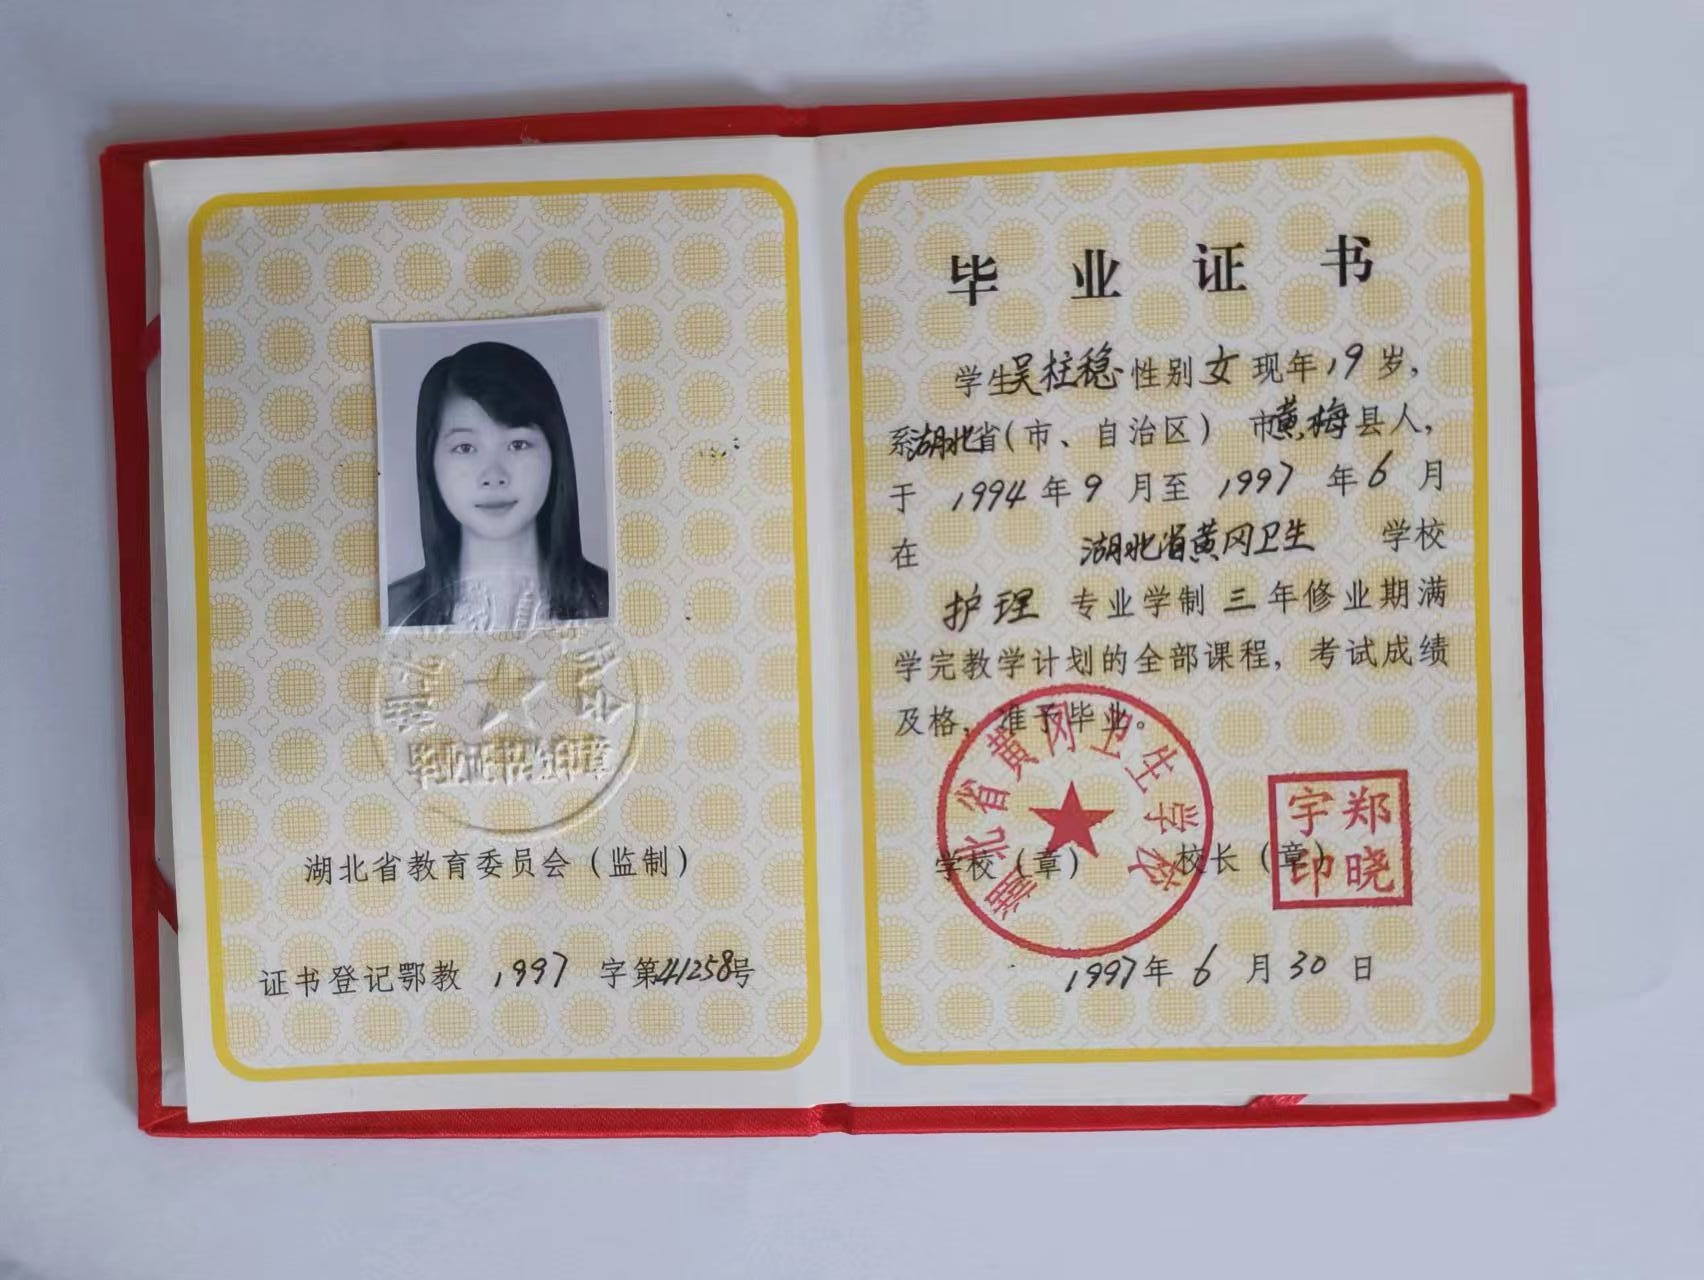 毕业证书
湖北省教育委员会
毕业证书钢印章
湖北省教育委员会（监制）
证书登记鄂教 1997 字第41258号
学生吴柱稳性别女现年19岁，
系湖北省（市、自治区） 市黄梅县人，
于 1994年9月至 1997年6月
在 湖北省黄冈卫生 学校
护理 专业学制三年修业期满
学完教学计划的全部课程，考试成绩
及格，准予毕业。
湖北省黄冈卫生学校
学校（章） 校长（章）
郑晓宇印
1997年6月30日